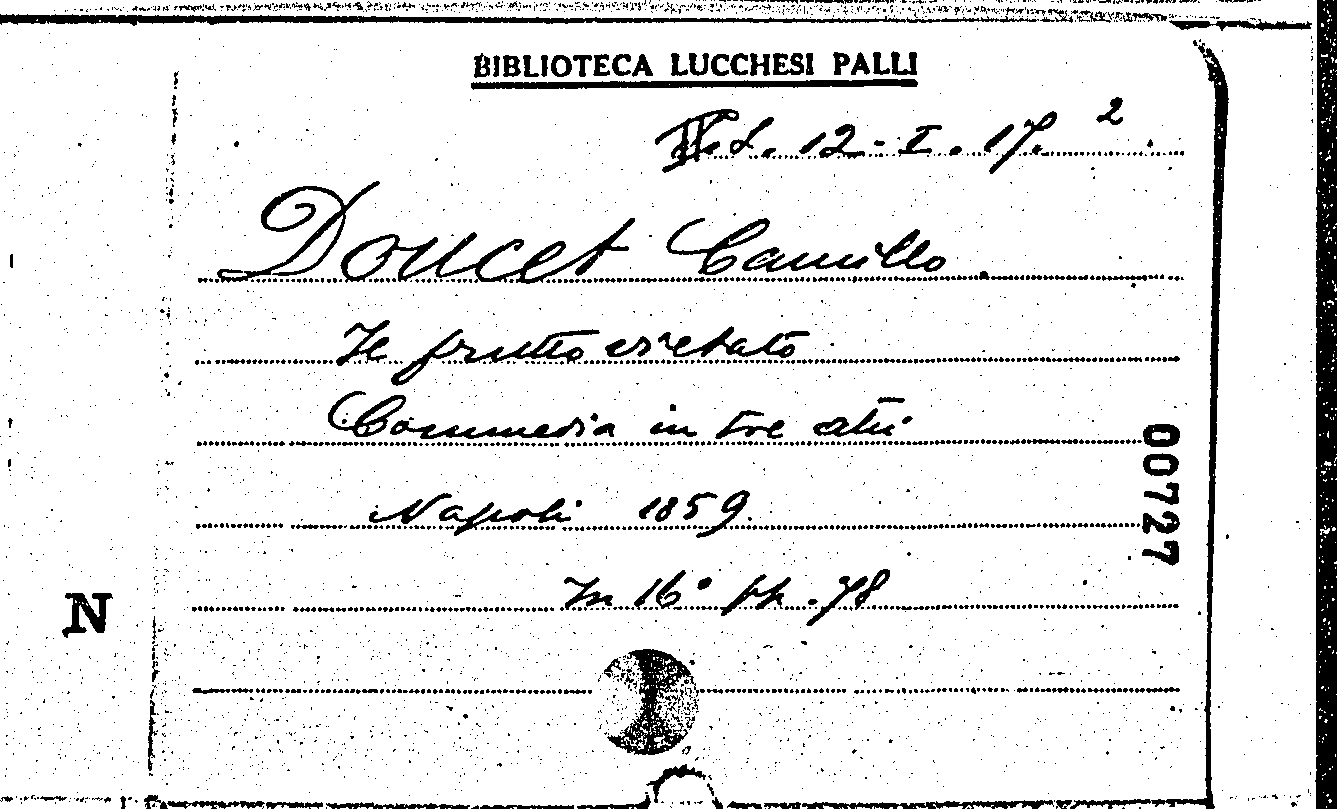 BIBLIOTECA LUCCHESI PALLI
12-I. 17. 2
Doucet Camillo.
Il frutto vietato
Commedia in tre atti
Napoli 1859.
In 16° pp. 78
00727
N